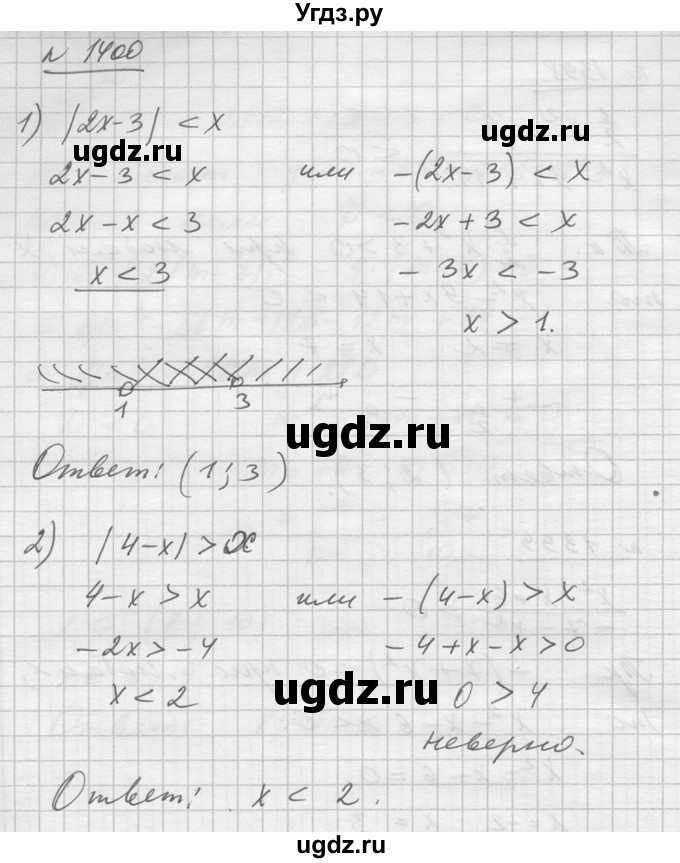 Угдз.ру
№ 1400
1) |2x-3| < x
ugdz.ru ugdz.ru
2x-3 < x или -(2x-3) < x
2x-x < 3 -2x+3 < x
x < 3 -3x < -3
x > 1.
1 3
ugdz.ru
Ответ: (1;3)
2) |4-x| > x
4-x > x или -(4-x) > x
-2x > -4 -4+x-x > 0
ugdz.ru ugdz.ru
x < 2 0 > 4
неверно.
Ответ: x < 2.
ugdz.ru